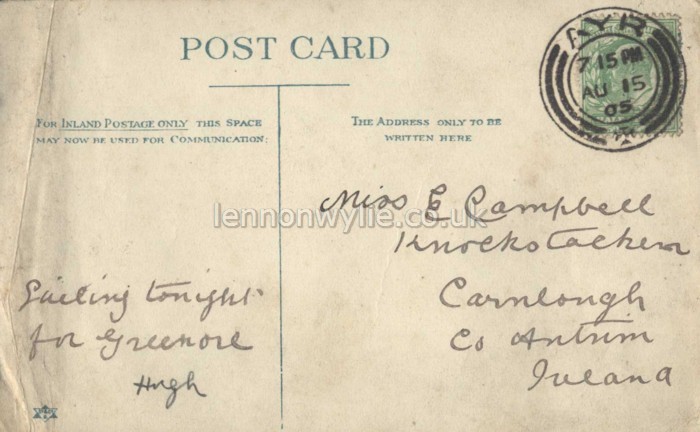 POST CARD
AYR
7 15 PM
AU 15
05
FOR INLAND POSTAGE ONLY THIS SPACE
MAY NOW BE USED FOR COMMUNICATION.
THE ADDRESS ONLY TO BE
WRITTEN HERE
lennonwylie.co.uk
Miss E Campbell
Carnlough
Co Antrim
Ireland
Sailing tonight
for Greenore
Hugh